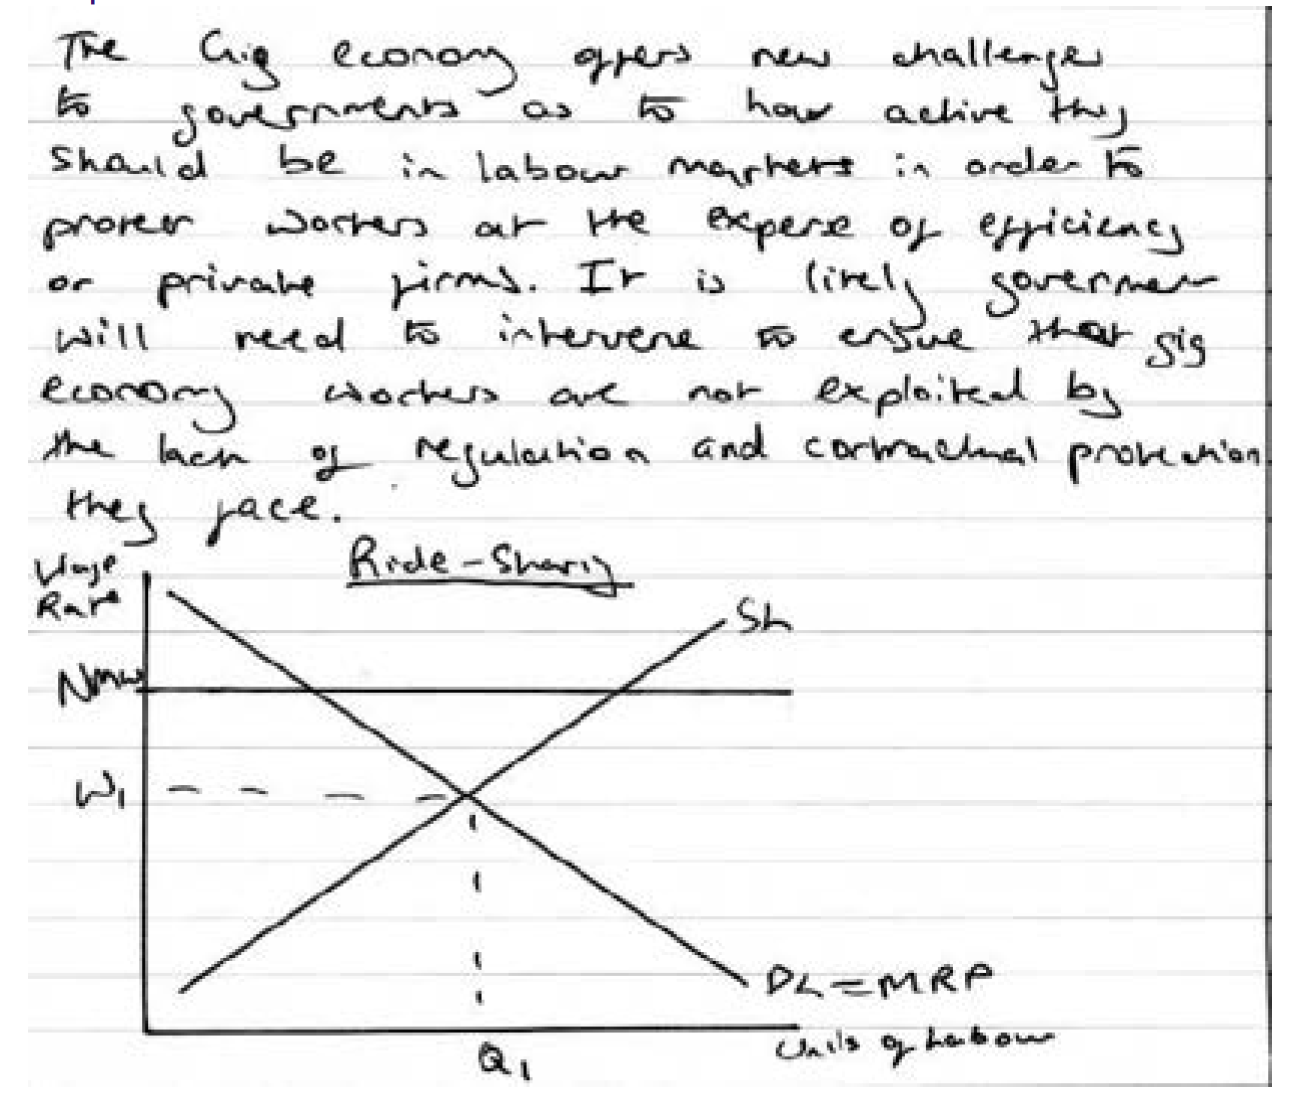 The Gig economy offers new challenges
to governments as to how active they
should be in labour markets in order to
protect workers at the expense of efficiency
or private firms. It is likely government
will need to intervene to ensure that gig
economy workers are not exploited by
the lack of regulation and contractual protection
they face.
Ride-Sharing
Wage
Rate
SL
NMW
W1
DL=MRP
Units of Labour
Q1